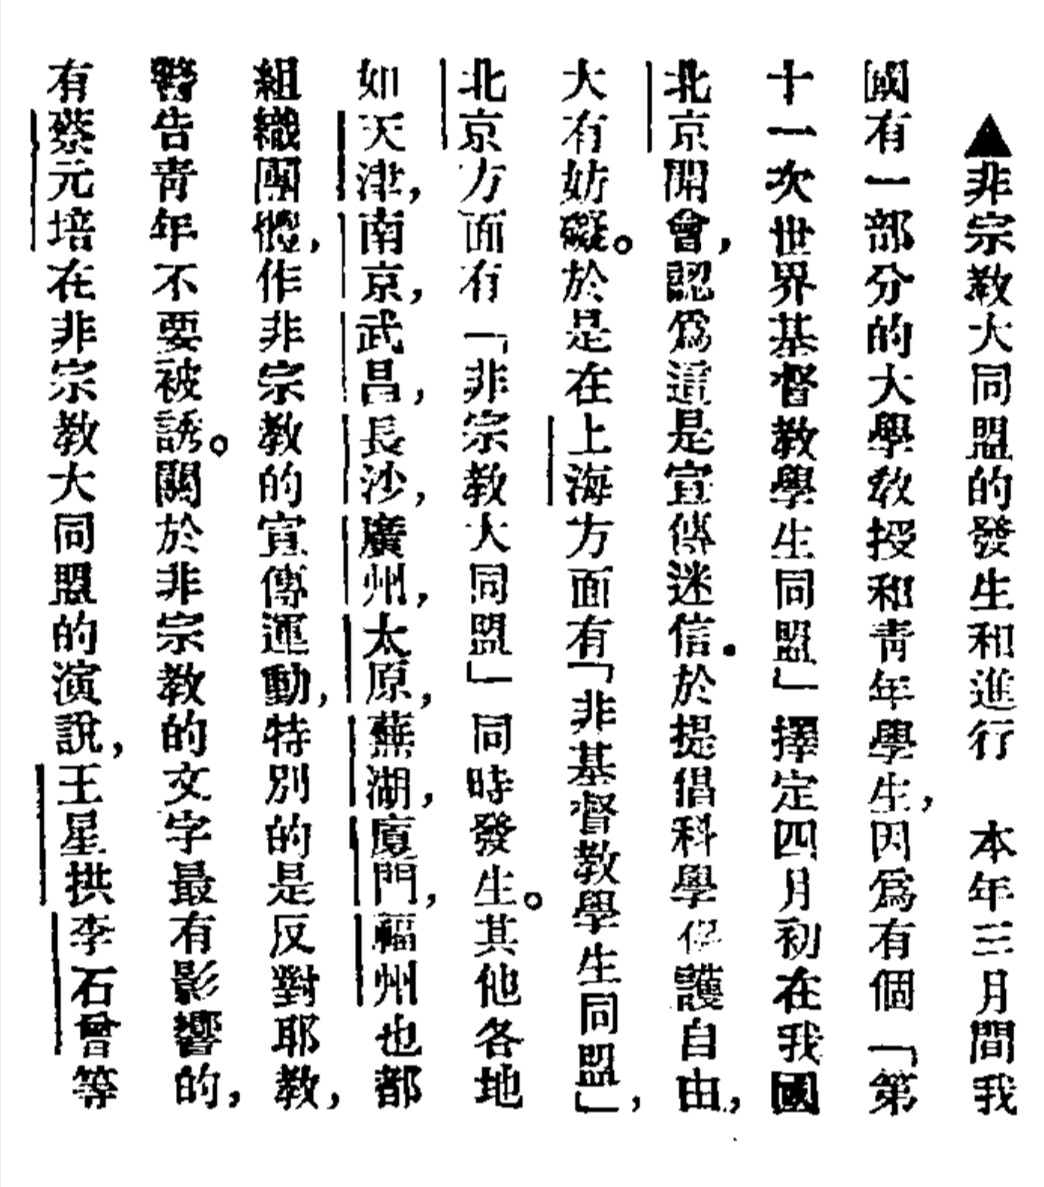 ▲非宗教大同盟的發生和進行　本年三月間我
國有一部分的大學教授和靑年學生,因爲有個「第
十一次世界基督教學生同盟」擇定四月初在我國
北京開會,認爲這是宣傳迷信.於提倡科學保護自由,
大有妨礙。於是在上海方面有「非基督教學生同盟」,
北京方面有「非宗教大同盟」同時發生。其他各地
如天津,南京,武昌,長沙,廣州,太原,蕪湖,廈門,福州也都
組織團體,作非宗教的宣傳運動,特別的是反對耶教,
警告靑年不要被誘。關於非宗教的文字最有影響的,
有蔡元培在非宗教大同盟的演說,王星拱李石曾等